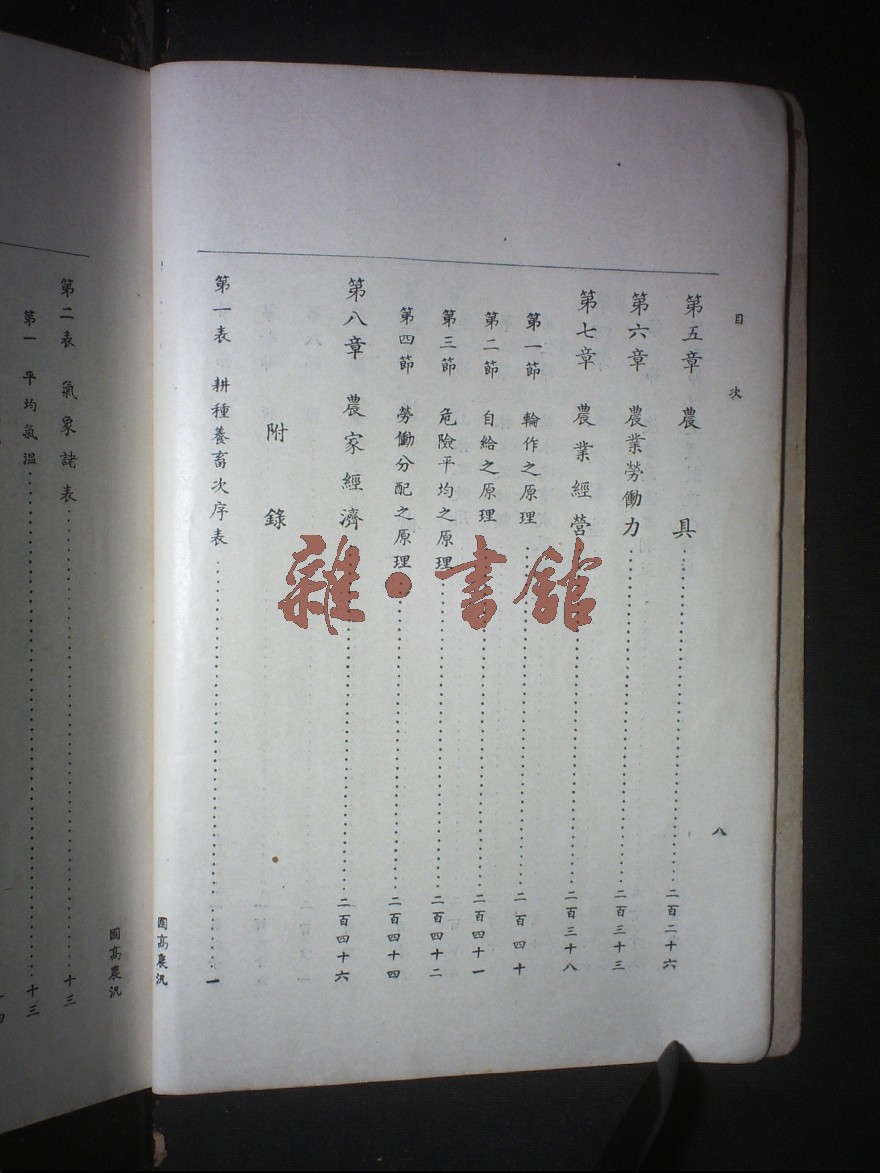 目次
第五章 農具 二百二十六
第六章 農業勞働力 二百三十三
第七章 農業經營 二百三十八
第一節 輪作之原理 二百四十
第二節 自給之原理 二百四十一
第三節 危險平均之原理 二百四十二
第四節 勞働分配之原理 二百四十四
第八章 農家經濟 二百四十六
附錄
第一表 耕種養畜次序表 一
八
國高農汎
國高農汎
第二表 氣象諸表 十三
第一 平均氣溫 十三
雜·書館